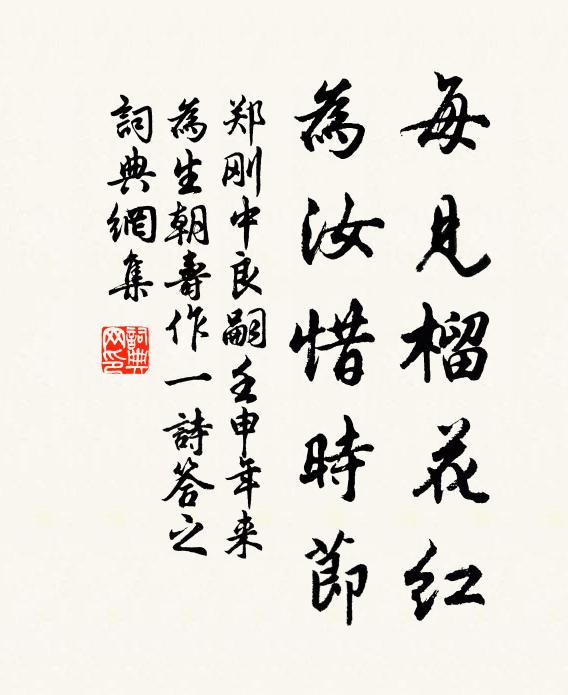 每見榴花紅
為汝惜時節
郑刚中良嗣壬申年来
為生朝壽作一詩答之
詞典網集
詞典网印